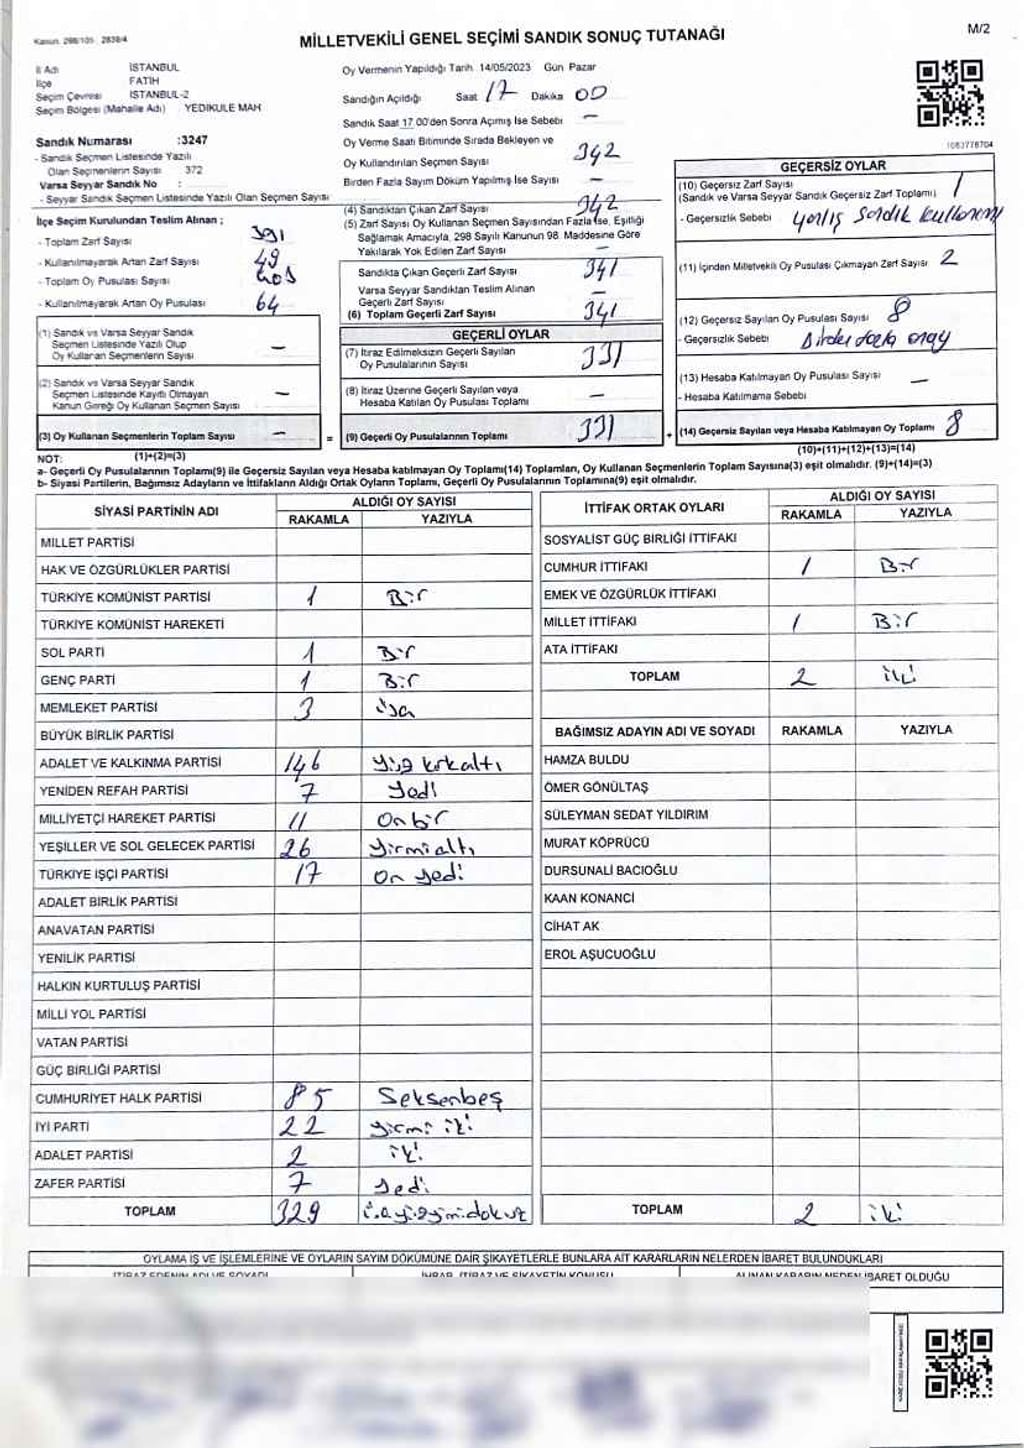 Kanun: 298/105 : 2839/4
MİLLETVEKİLİ GENEL SEÇİMİ SANDIK SONUÇ TUTANAĞI
M/2
İl Adı İSTANBUL
İlçe FATİH
Seçim Çevresi İSTANBUL-2
Seçim Bölgesi (Mahalle Adı) YEDİKULE MAH
Sandık Numarası :3247
- Sandık Seçmen Listesinde Yazılı
Olan Seçmenlerin Sayısı 372
Varsa Seyyar Sandık No :
- Seyyar Sandık Seçmen Listesinde Yazılı Olan Seçmen Sayısı
Oy Vermenin Yapıldığı Tarih 14/05/2023 Gün Pazar
Sandığın Açıldığı Saat 17 Dakika 00
Sandık Saat 17.00'den Sonra Açılmış İse Sebebi —
Oy Verme Saati Bitiminde Sırada Bekleyen ve
Oy Kullandırılan Seçmen Sayısı 342
Birden Fazla Sayım Döküm Yapılmış İse Sayısı —
1083778704
İlçe Seçim Kurulundan Teslim Alınan ;
- Toplam Zarf Sayısı 391
- Kullanılmayarak Artan Zarf Sayısı 49
- Toplam Oy Pusulası Sayısı
- Kullanılmayarak Artan Oy Pusulası 64
(1) Sandık ve Varsa Seyyar Sandık
Seçmen Listesinde Yazılı Olup
Oy Kullanan Seçmenlerin Sayısı —
(2) Sandık ve Varsa Seyyar Sandık
Seçmen Listesinde Kayıtlı Olmayan
Kanun Gereği Oy Kullanan Seçmen Sayısı —
(3) Oy Kullanan Seçmenlerin Toplam Sayısı —
(1)+(2)=(3)
(4) Sandıktan Çıkan Zarf Sayısı 342
(5) Zarf Sayısı Oy Kullanan Seçmen Sayısından Fazla İse, Eşitliği
Sağlamak Amacıyla, 298 Sayılı Kanunun 98. Maddesine Göre
Yakılarak Yok Edilen Zarf Sayısı —
Sandıkta Çıkan Geçerli Zarf Sayısı 341
Varsa Seyyar Sandıktan Teslim Alınan
Geçerli Zarf Sayısı —
(6) Toplam Geçerli Zarf Sayısı 341
GEÇERLİ OYLAR
(7) İtiraz Edilmeksizin Geçerli Sayılan
Oy Pusulalarının Sayısı 331
(8) İtiraz Üzerine Geçerli Sayılan veya
Hesaba Katılan Oy Pusulası Toplamı —
= (9) Geçerli Oy Pusulalarının Toplamı 331 +
GEÇERSİZ OYLAR
(10) Geçersiz Zarf Sayısı
(Sandık ve Varsa Seyyar Sandık Geçersiz Zarf Toplamı) 1
- Geçersizlik Sebebi yanlış sandık kullanımı
(11) İçinden Milletvekili Oy Pusulası Çıkmayan Zarf Sayısı 2
(12) Geçersiz Sayılan Oy Pusulası Sayısı 8
- Geçersizlik Sebebi Birden fazla onay
(13) Hesaba Katılmayan Oy Pusulası Sayısı —
- Hesaba Katılmama Sebebi
(14) Geçersiz Sayılan veya Hesaba Katılmayan Oy Toplamı 8
(10)+(11)+(12)+(13)=(14)
NOT:
a- Geçerli Oy Pusulalarının Toplamı(9) ile Geçersiz Sayılan veya Hesaba katılmayan Oy Toplamı(14) Toplamları, Oy Kullanan Seçmenlerin Toplam Sayısına(3) eşit olmalıdır. (9)+(14)=(3)
b- Siyasi Partilerin, Bağımsız Adayların ve İttifakların Aldığı Ortak Oyların Toplamı, Geçerli Oy Pusulalarının Toplamına(9) eşit olmalıdır.
SİYASİ PARTİNİN ADI ALDIĞI OY SAYISI
RAKAMLA YAZIYLA
MİLLET PARTİSİ
HAK VE ÖZGÜRLÜKLER PARTİSİ
TÜRKİYE KOMÜNİST PARTİSİ 1 Bir
TÜRKİYE KOMÜNİST HAREKETİ
SOL PARTİ 1 Bir
GENÇ PARTİ 1 Bir
MEMLEKET PARTİSİ 3
BÜYÜK BİRLİK PARTİSİ
ADALET VE KALKINMA PARTİSİ 146 Yüz kırkaltı
YENİDEN REFAH PARTİSİ 7 Yedi
MİLLİYETÇİ HAREKET PARTİSİ 11 Onbir
YEŞİLLER VE SOL GELECEK PARTİSİ 26 Yirmialtı
TÜRKİYE İŞÇİ PARTİSİ 17 On yedi
ADALET BİRLİK PARTİSİ
ANAVATAN PARTİSİ
YENİLİK PARTİSİ
HALKIN KURTULUŞ PARTİSİ
MİLLİ YOL PARTİSİ
VATAN PARTİSİ
GÜÇ BİRLİĞİ PARTİSİ
CUMHURİYET HALK PARTİSİ 85 Seksenbeş
İYİ PARTİ 22 yirmi iki
ADALET PARTİSİ 2 iki
ZAFER PARTİSİ 7 yedi
TOPLAM 329
İTTİFAK ORTAK OYLARI ALDIĞI OY SAYISI
RAKAMLA YAZIYLA
SOSYALİST GÜÇ BİRLİĞİ İTTİFAKI
CUMHUR İTTİFAKI 1 Bir
EMEK VE ÖZGÜRLÜK İTTİFAKI
MİLLET İTTİFAKI 1 Bir
ATA İTTİFAKI
TOPLAM 2 iki
BAĞIMSIZ ADAYIN ADI VE SOYADI RAKAMLA YAZIYLA
HAMZA BULDU
ÖMER GÖNÜLTAŞ
SÜLEYMAN SEDAT YILDIRIM
MURAT KÖPRÜCÜ
DURSUNALİ BACIOĞLU
KAAN KONANCİ
CİHAT AK
EROL AŞUCUOĞLU
TOPLAM 2 iki
OYLAMA İŞ VE İŞLEMLERİNE VE OYLARIN SAYIM DÖKÜMÜNE DAİR ŞİKAYETLERLE BUNLARA AİT KARARLARIN NELERDEN İBARET BULUNDUKLARI
İTİRAZ EDENİN ADI VE SOYADI İHBAR, İTİRAZ VE ŞİKAYETİN KONUSU ALINAN KARARIN NEDEN İBARET OLDUĞU